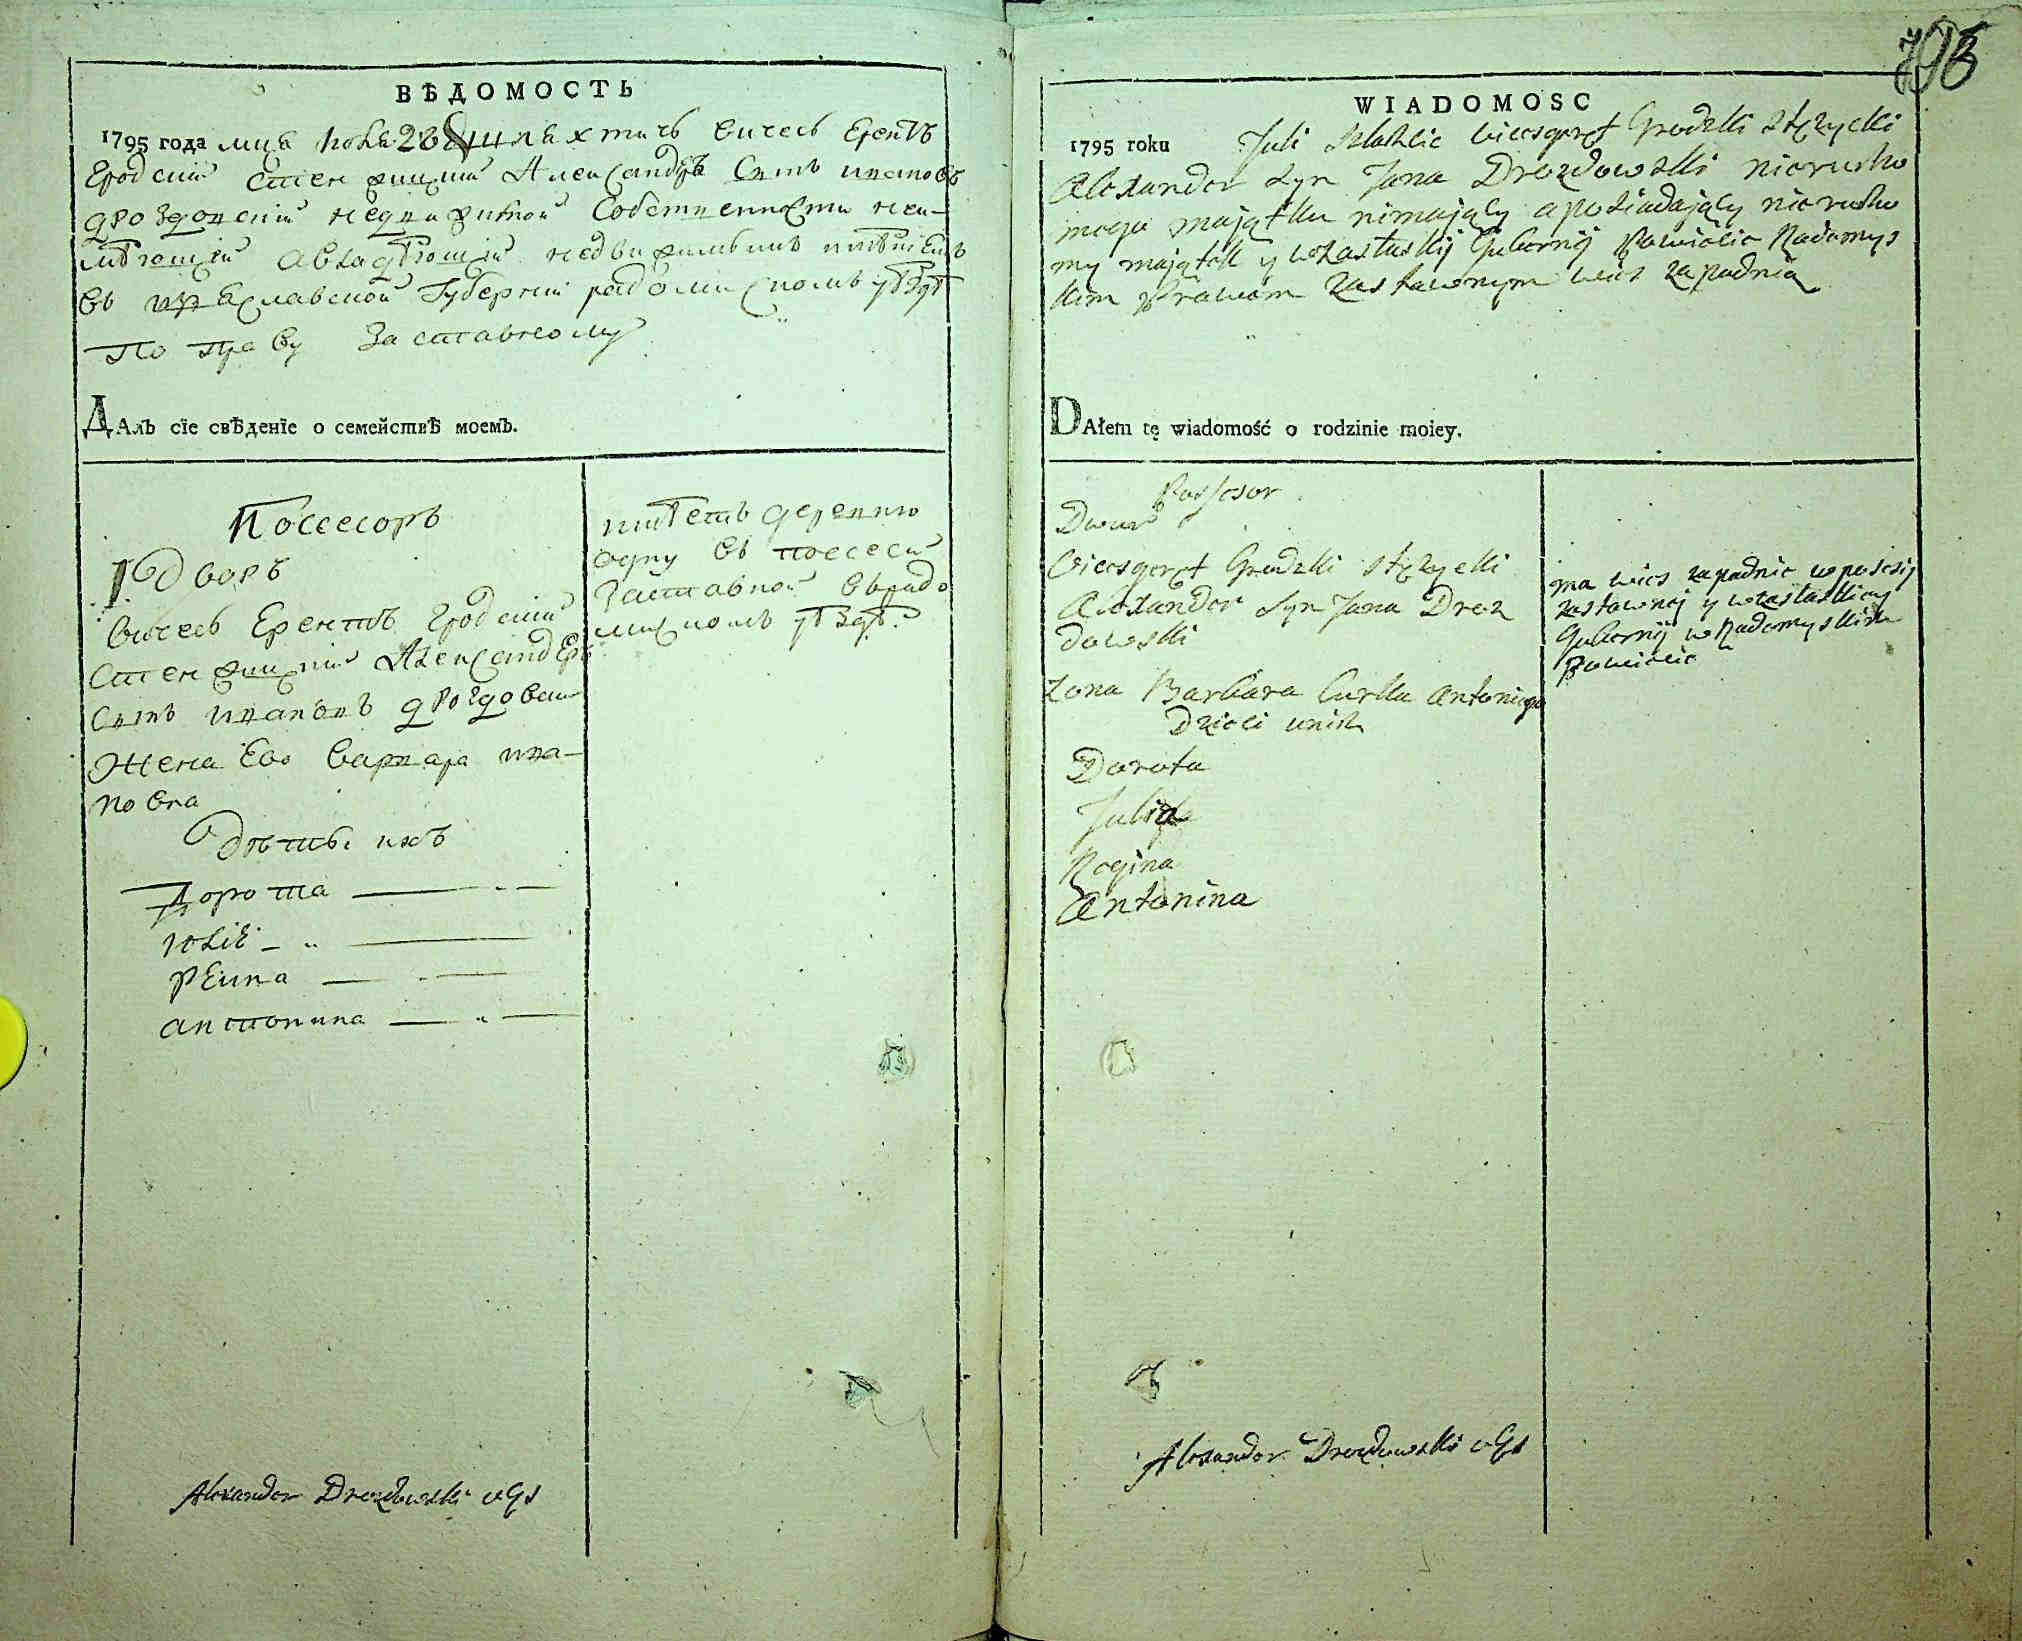 ВѢДОМОСТЬ
1795 года мца июля 28 шляхтичь вицесъ Ерентъ
Гродскій Стенжицкій Александръ Сынъ ивановъ
дроздовскій недвижимой Собственности неи-
мѣющій авладѣющій недвижимымъ имѣніемъ
въ изяславской Губерніи радомисломъ уѣздѣ
По праву Заставному
ДАлъ сїе свѣденїе о семействѣ моемъ.
Поссесоръ
1 Дворъ
вицесъ Ерентъ Гродскій
Стенжицкій Александеръ
Сынъ ивановъ дроздовски
Жена Ево варвара ива-
новна
Дѣти ихъ
Дорота
юлiѣ
РЕина
антонина
имѣетъ деревню
одну въ посесіи
Заставной врадо
мисломъ уѣздѣ.
Alexander Drozdowski vGs
798
WIADOMOSC
1795 roku Juli Szlahcic Vicesgeręt Grodzki Stęzycki
Alexander Syn Jana Drozdowski nierucho
mego maiątku nimaiący a posiadaiący nierucho
my maiątek y wzasławskij Gubernij Powiecie Radomys
kim Prawem Zastawnym wieś zapadnią
DAłem tę wiadomość o rodzinie moiey.
Possesor
Dwur
Vicesgeręt Grodzki Stęzycki
Alexander Syn Jana Droz
dowski
Zona Barbara Curka Antoniego
Dzieci unich
Dorota
Julia
Regina
Antonina
ma wieś zapadnie wposesij
zastawnej y wzasławskiey
Gubernij w Radomyskim
Powiecie
Alexander Drozdowski vGs